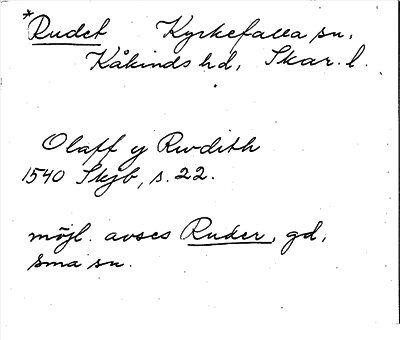 *Rudet Kyrkefalla sn,
Kåkinds hd, Skar. l.
Olaff y Rwdith
1540 Skjb, s. 22.
möjl. avses Ruder, gd,
sma sn.